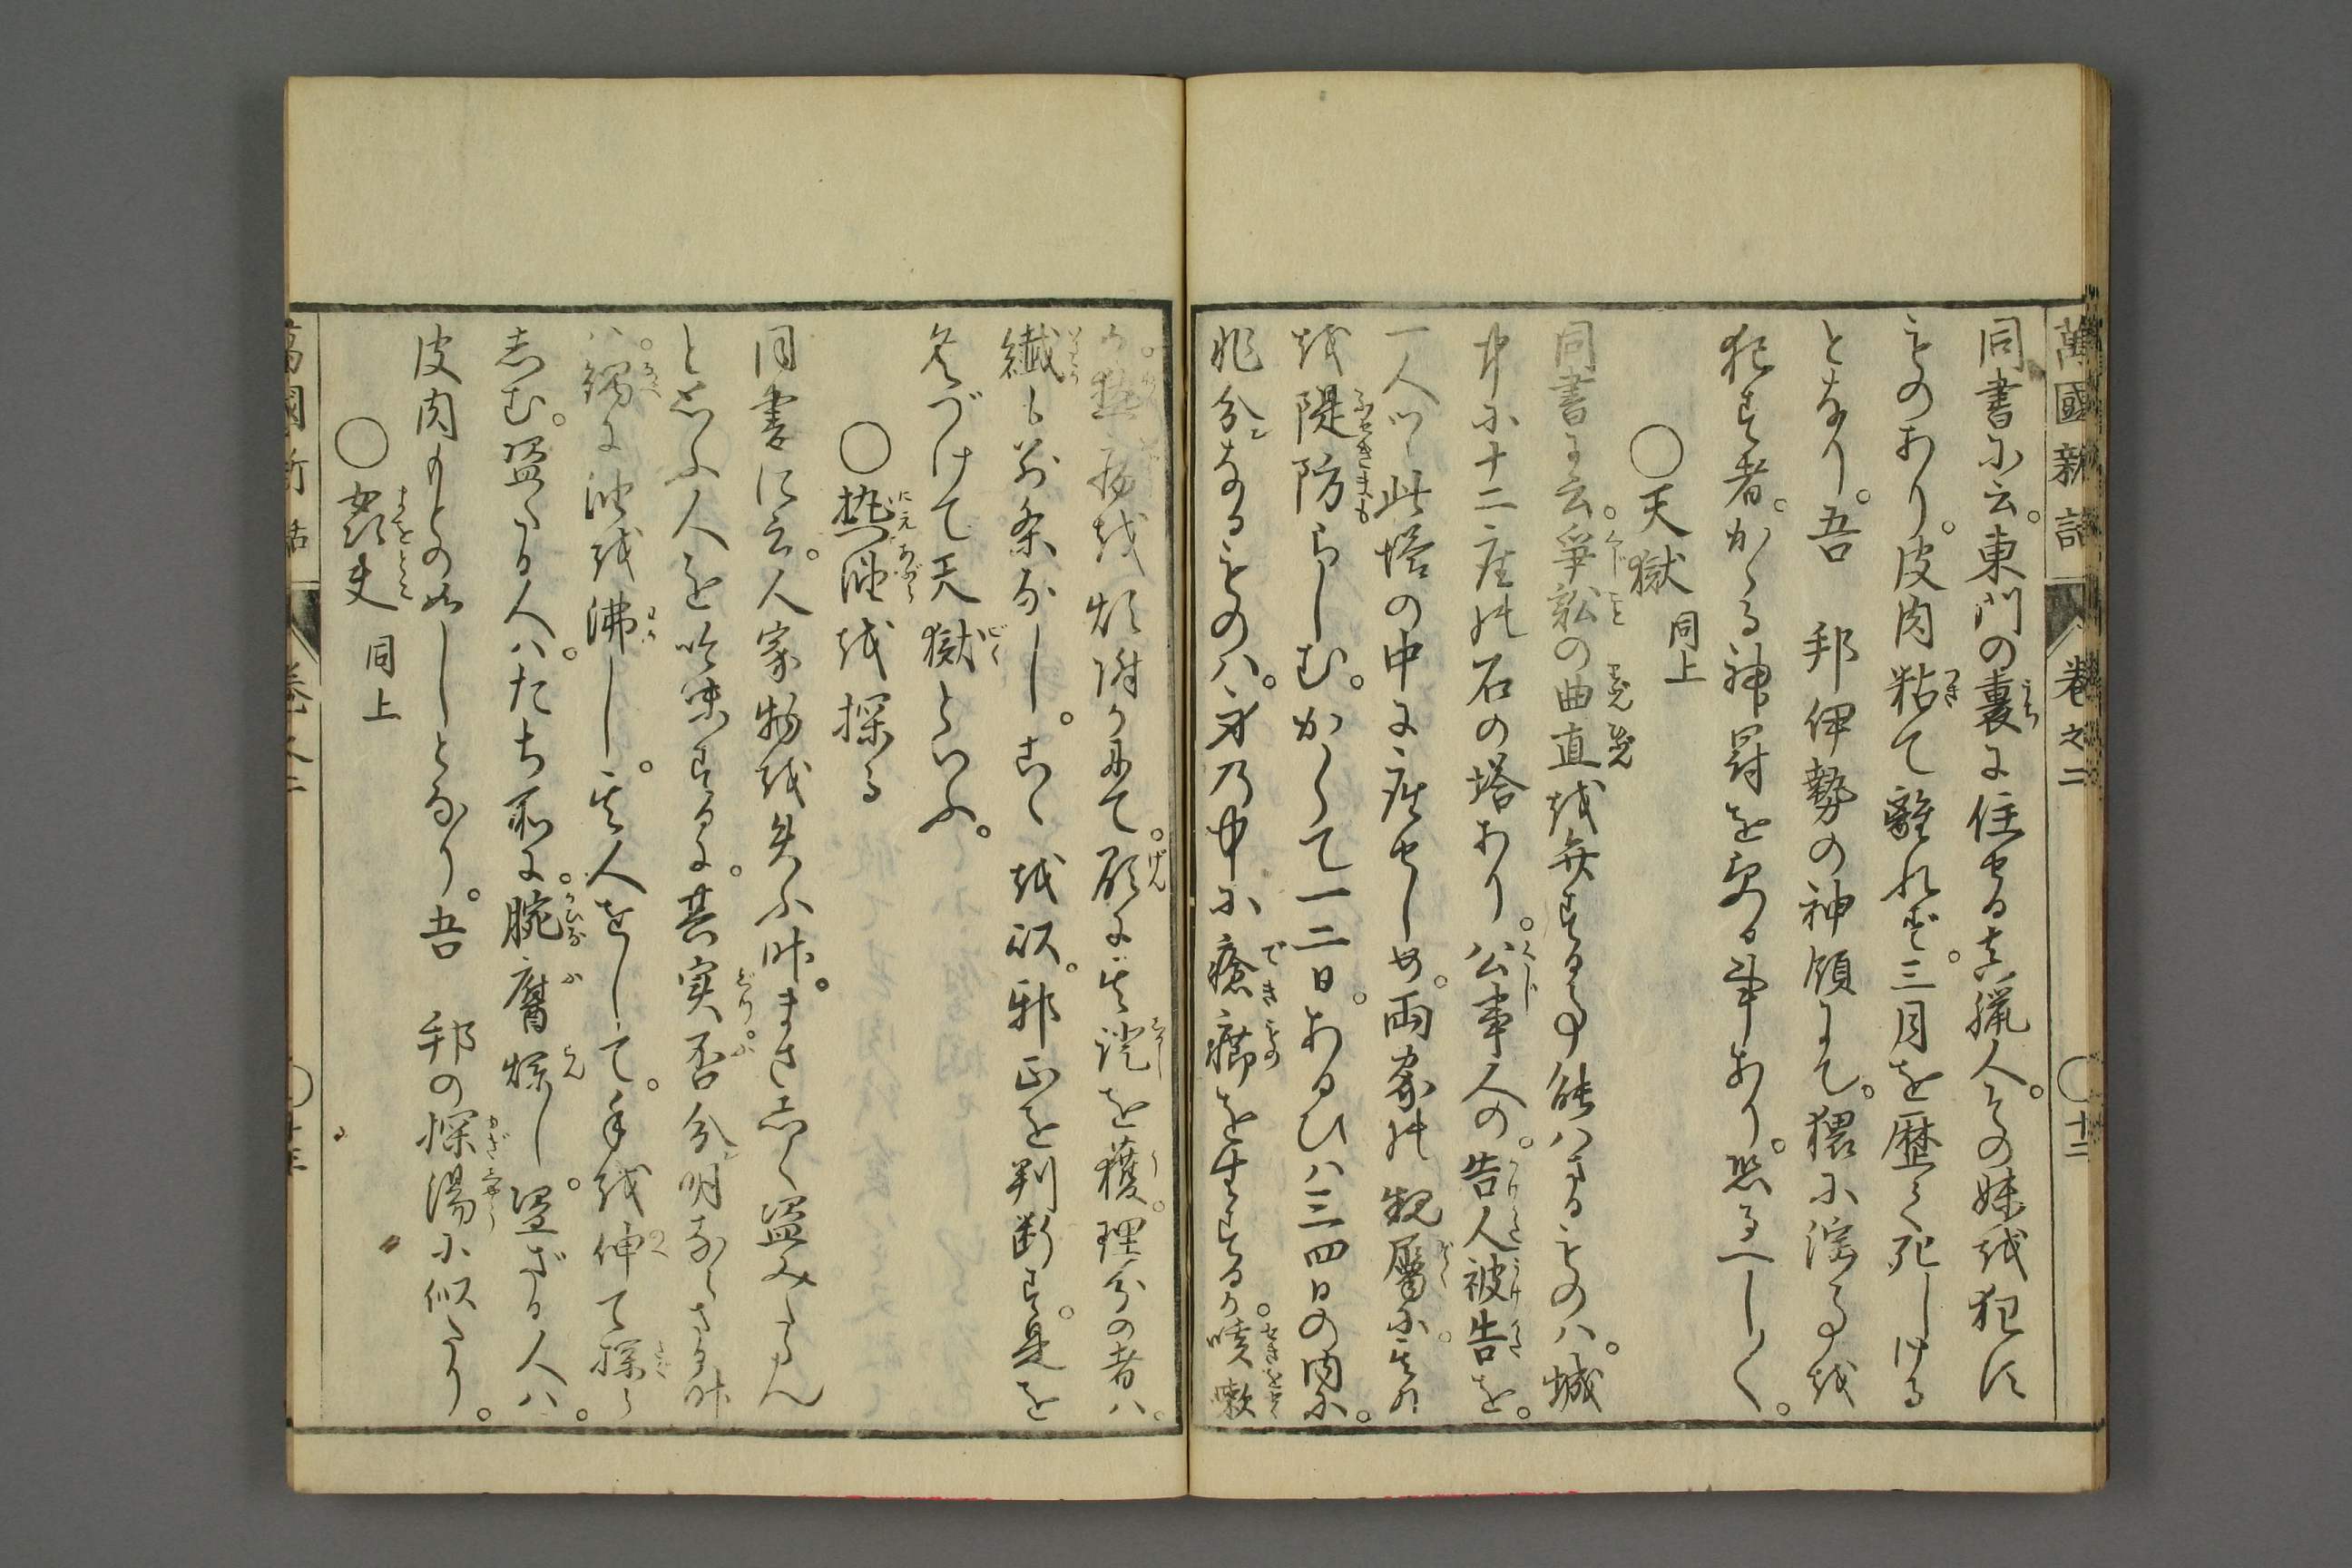 萬國新話 卷之二 〇十二
同書に云。東門の裏に住せる真臘人。その妹を犯に
ものあり。皮肉粘て離れず。三日を歴て死しける
となり。吾 邦伊勢の神領にて。猥に淫事を
犯す者。かゝる神罸を契る事あり。恐るべし〱。
〇天獄 同上
同書に云。爭訟の曲直を弁ずる事能はざるものハ。城
中に十二座の石の塔あり。公事人の。告人被告を。
一人ツヽ此塔の中に座せしめ。両家の親屬に其
を隄防らしむ。かくて一二日。あるひハ三四日の内に。
非分なるものハ。身の中に瘡癤を生ずるか。咳嗽
熱病を煩得か出て。顕に其證を獲。理分の者ハ。
纎も別条なし。こゝを以。邪正を判断す。是を
名づけて天獄といふ。
〇熱油を探る
同書に云。人家物を失ふ時。まさしく盗みたらん
と思ふ人を吟味するに。其実否分明ならざる時
ハ。鍋に油を沸し。其人をして。手を伸て探ら
しむ。盗たる人ハ。たち所に。腕腐爛し。盗ざる人ハ。
皮肉もとの如しとなり。吾 邦の探湯に似たり。
〇 同上
萬國新話 卷之二